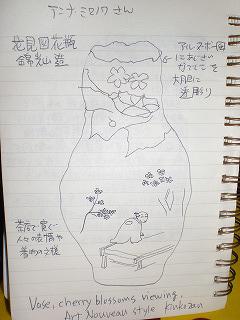 アンナ ミモノワ さん
花見図花瓶
錦光山 造
アルヌーボー風
に
を
大胆に
透彫り
茶店で寛ぐ
人々の表情や
着物の文様
Vase, cherry blossoms viewing,
Art Nouveau style Kinkozan